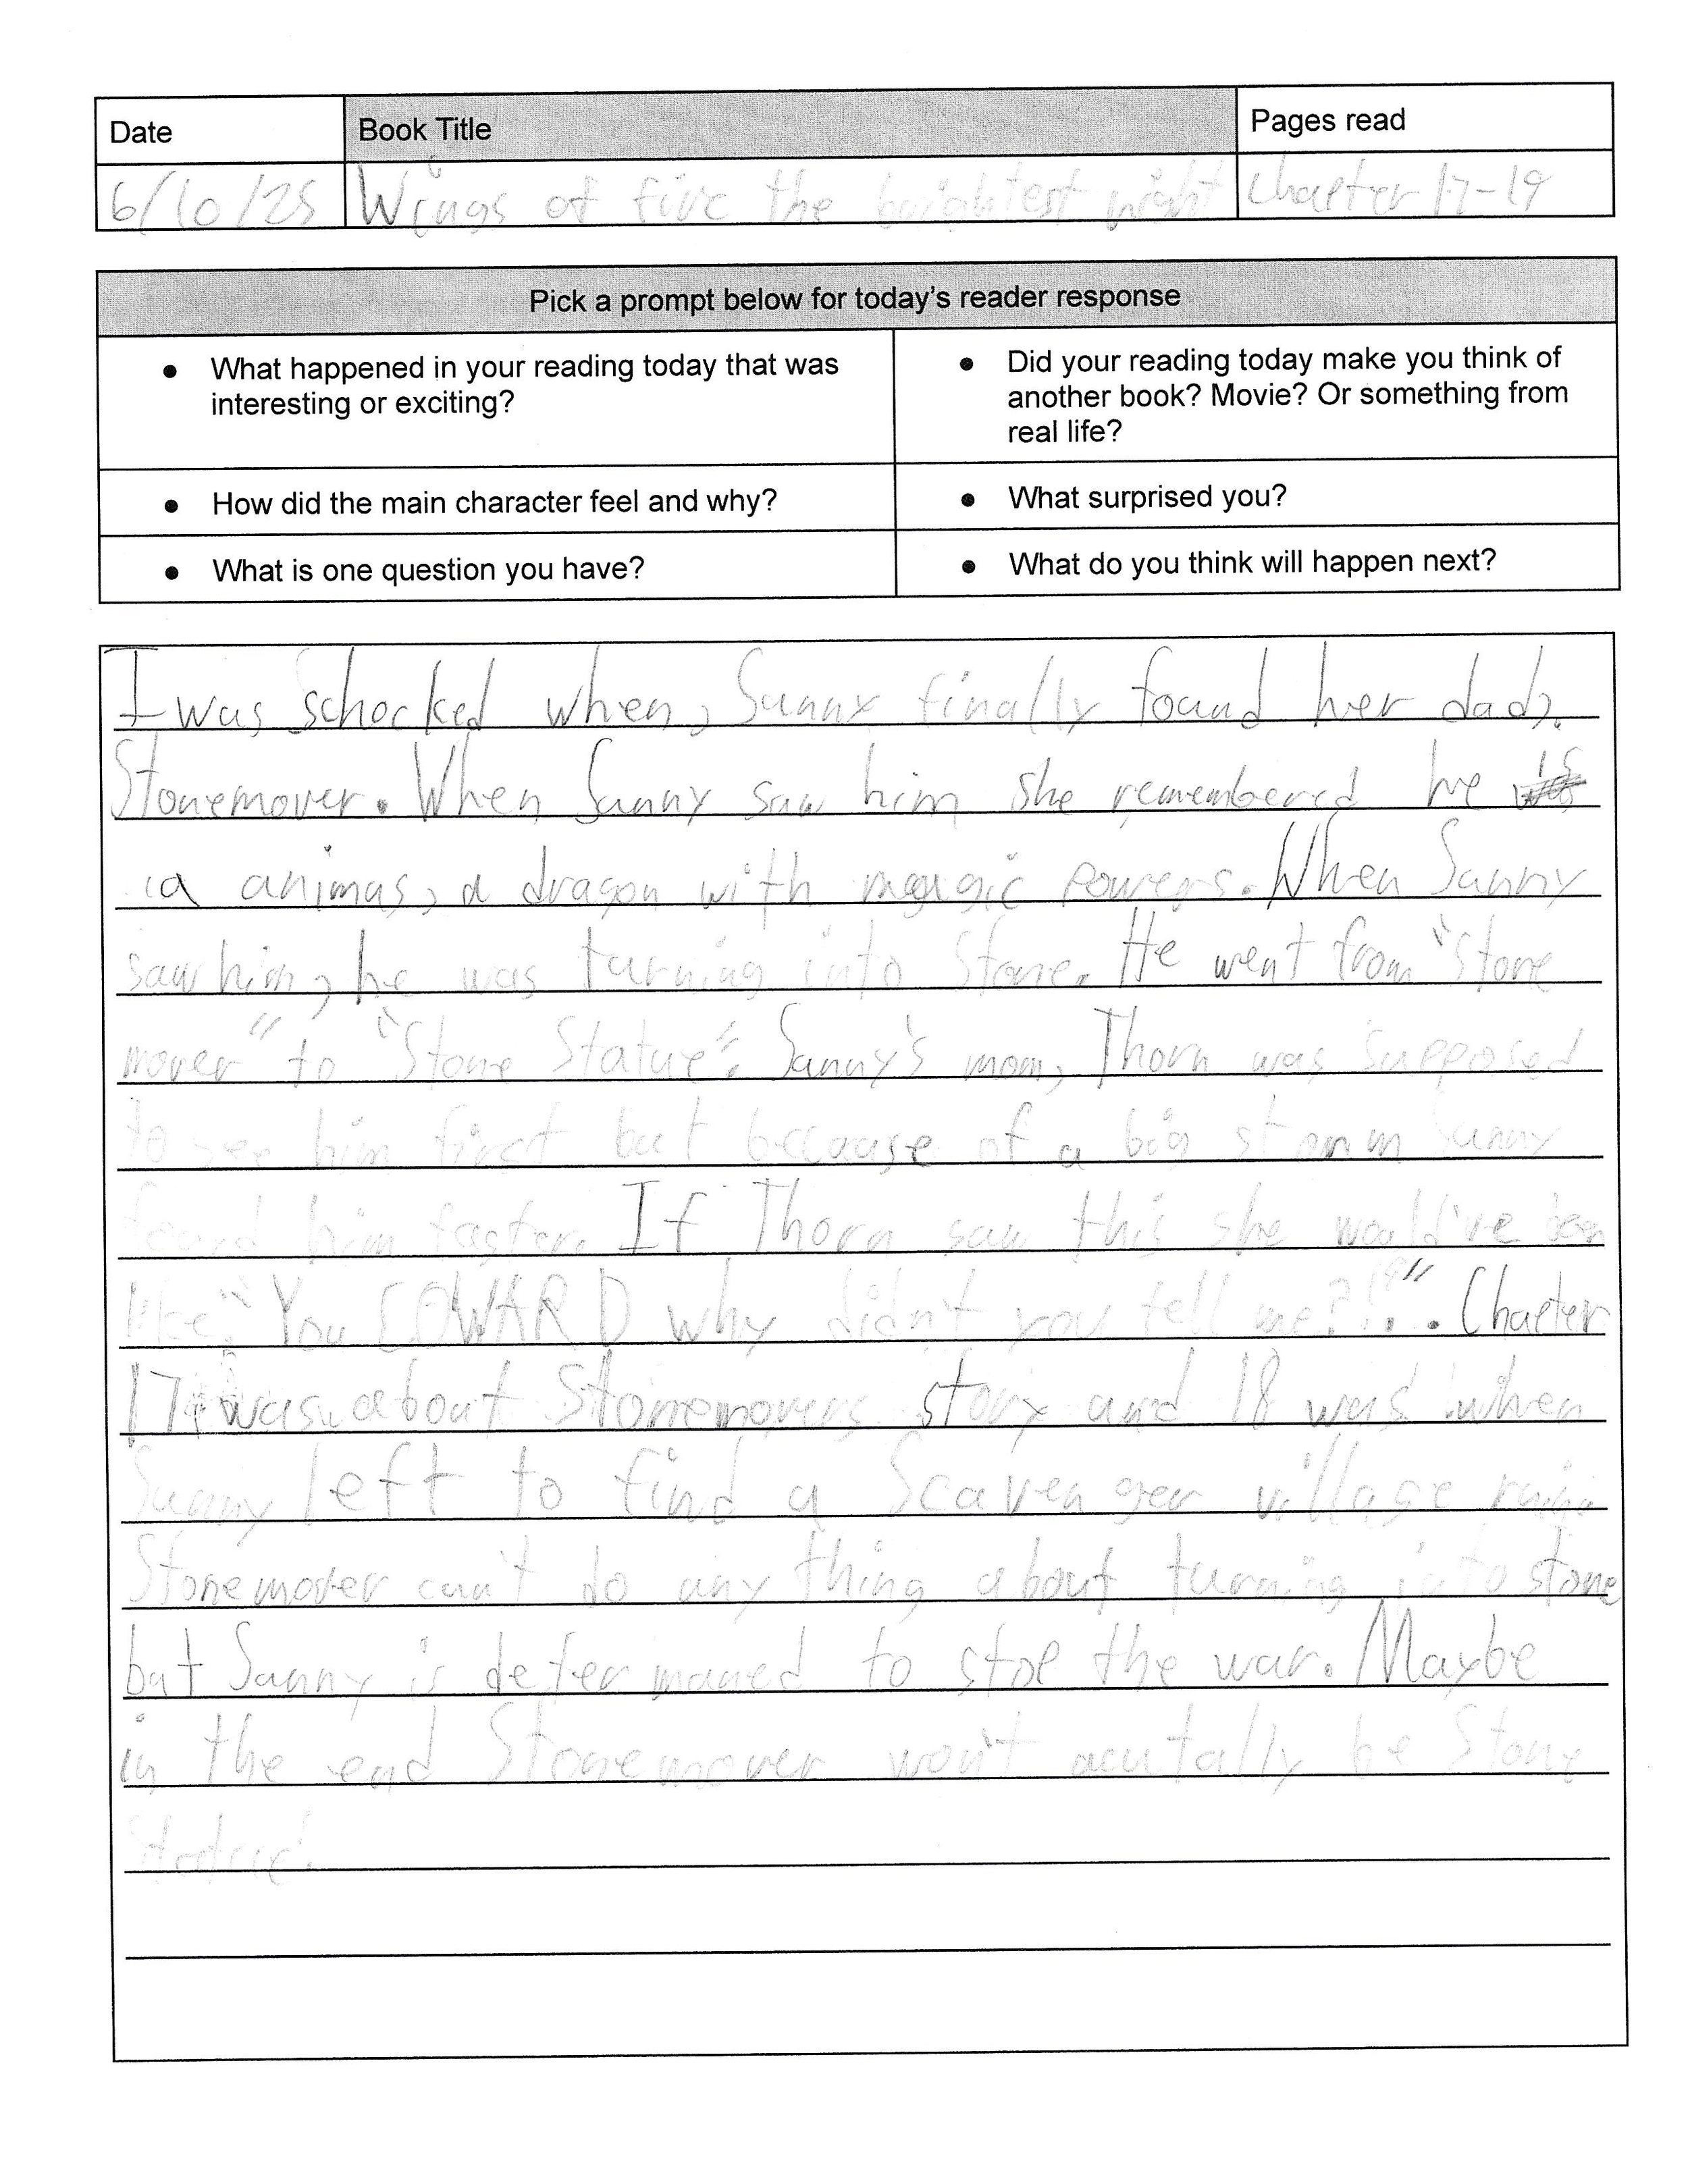 Date
Book Title
Pages read
6/10/25
Wings of fire the brightest night
Chapter 17-19
Pick a prompt below for today's reader response
• What happened in your reading today that was
interesting or exciting?
• Did your reading today make you think of
another book? Movie? Or something from
real life?
• How did the main character feel and why?
• What surprised you?
• What is one question you have?
• What do you think will happen next?
I was schocked when, Sunny finally found her dad,
Stonemover. When Sunny saw him she remembered he is
a animas, a dragon with magic powers. When Sunny
saw him, he was turning into Stone. He went from "Stone
mover" to "Stone Statue". Sunny's mom, Thorn was supposed
to see him first but because of a big storm Sunny
found him faster. If Thorn saw this she would've been
like, "You COWARD why didn't you tell me?!"... Chapter
17 was about Stonemovers story and 18 was when
Sunny left to find a Scavenger village
Stonemover can't do any thing about turning into stone
but Sunny is determaned to stop the war. Maybe
in the end Stonemover won't acutally be Stone
Statue.